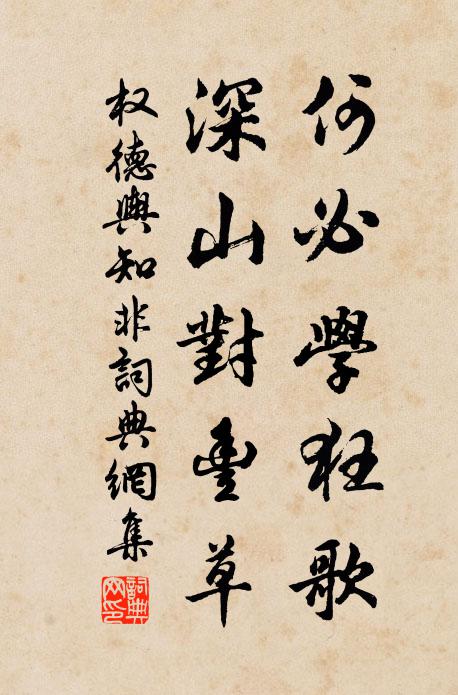 何必學狂歌
深山對豐草
权德輿知非詞典網集
詞典網印